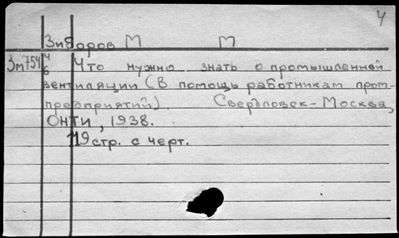 4
Зиборов М М
Зм754 4 Что нужно знать о промышленной
6 вентиляции (В помощь работникам пром-
предприятий). Свердловск-Москва,
ОНТИ, 1938.
119 стр. с черт.